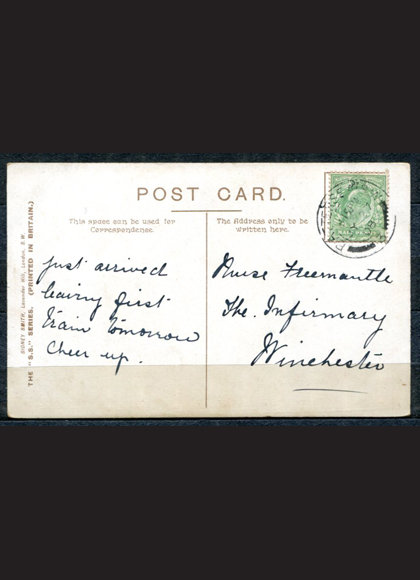 POST CARD.
This space can be used for
Correspondence.
The Address only to be
written here.
Just arrived
leaving first
train tomorrow
Cheer up.
Nurse Freemantle
The. Infirmary
Winchester
THE "S.S." SERIES. (PRINTED IN BRITAIN.)
SIDNEY SMITH, Lavender Hill, London, S.W.